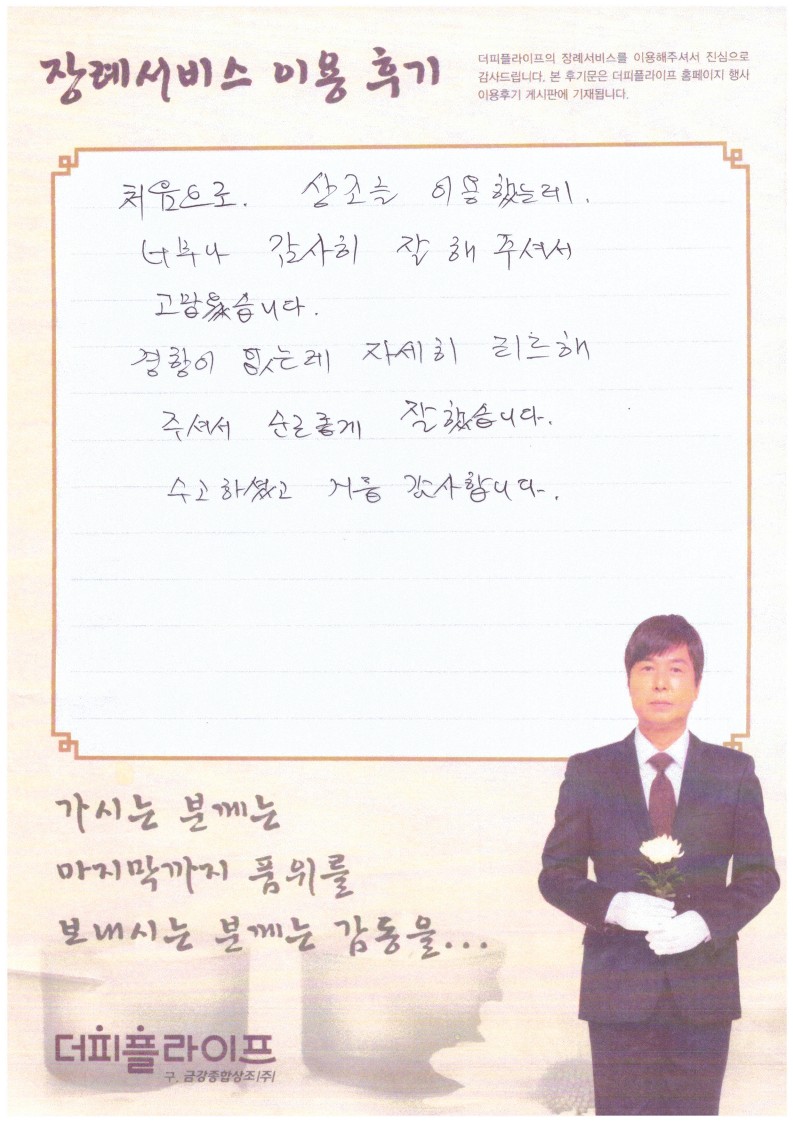 장례서비스 이용 후기
더피플라이프의 장례서비스를 이용해주셔서 진심으로
감사드립니다. 본 후기문은 더피플라이프 홈페이지 행사
이용후기 게시판에 기재됩니다.
처음으로. 상조를 이용했는데.
너무나 감사히 잘 해 주셔서
고맙웠습니다.
경황이 없는데 자세히 리드해
주셔서 순조롭게 잘했습니다.
수고하셨고 거듭 감사합니다.
가시는 분께는
마지막까지 품위를
보내시는 분께는 감동을...
더피플라이프
구. 금강종합상조(주)